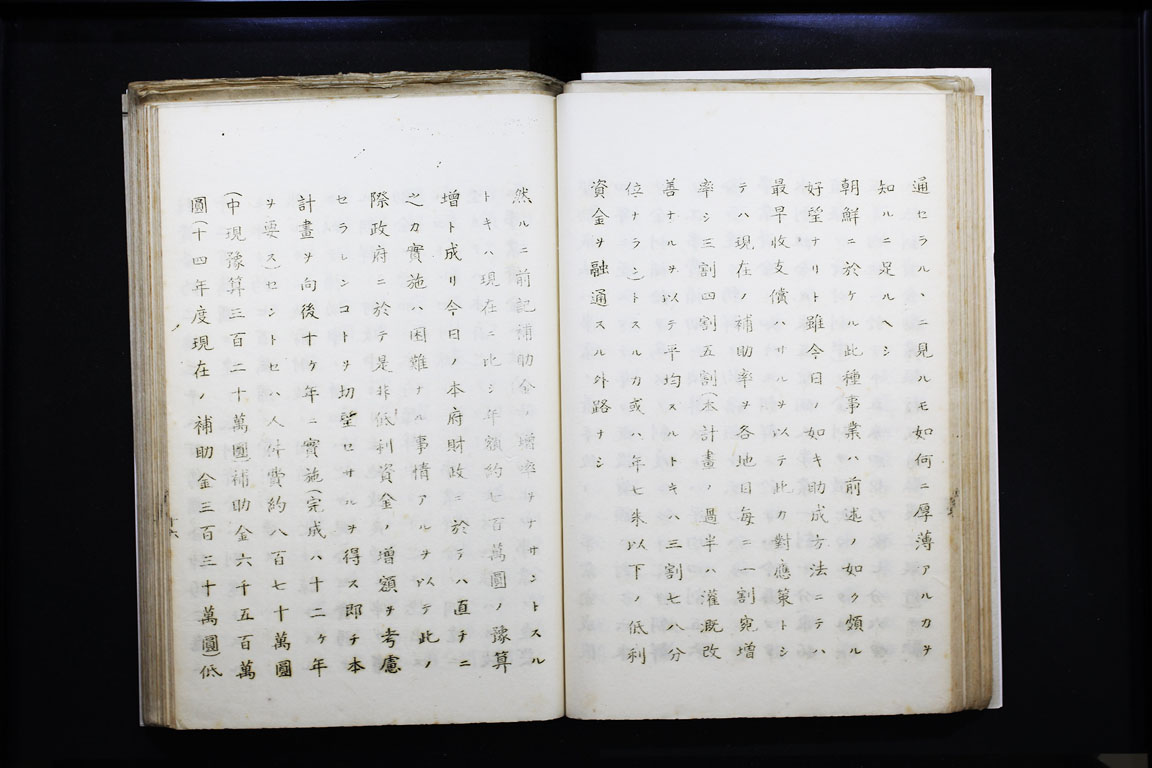 通セラルヽニ見ルモ如何ニ厚薄アルカヲ
知ルニ足ルヘシ
朝鮮ニ於ケル此種事業ハ前述ノ如ク頗ル
好望ナリト雖今日ノ如キ助成方法ニテハ
最早收支償ハサルヲ以テ此カ對應策トシ
テハ現在ノ補助率ヲ各地目每ニ一割宛增
率シ三割四割五割(本計畫ノ過半ハ灌漑改
善ナルヲ以テ平均スルトキハ三割七八分
位ナラン)トスルカ或ハ年七朱以下ノ低利
資金ヲ融通スル外路ナシ
然ルニ前記補助金ノ增率ヲナサントスル
トキハ現在ニ比シ年額約七百萬圓ノ豫算
增ト成リ今日ノ本府財政ニ於テハ直チニ
之カ實施ハ困難ナル事情アルヲ以テ此ノ
際政府ニ於テ是非低利資金ノ增額ヲ考慮
セラレンコトヲ切望セサルヲ得ス卽チ本
計畫ヲ向後十ケ年ニ實施(完成ハ十二ケ年
ヲ要ス)セントセハ人件費約八百七十萬圓
(中現豫算三百二十萬圓)補助金六千五百萬
圓(十四年度現在ノ補助金三百三十萬圓)低
十六